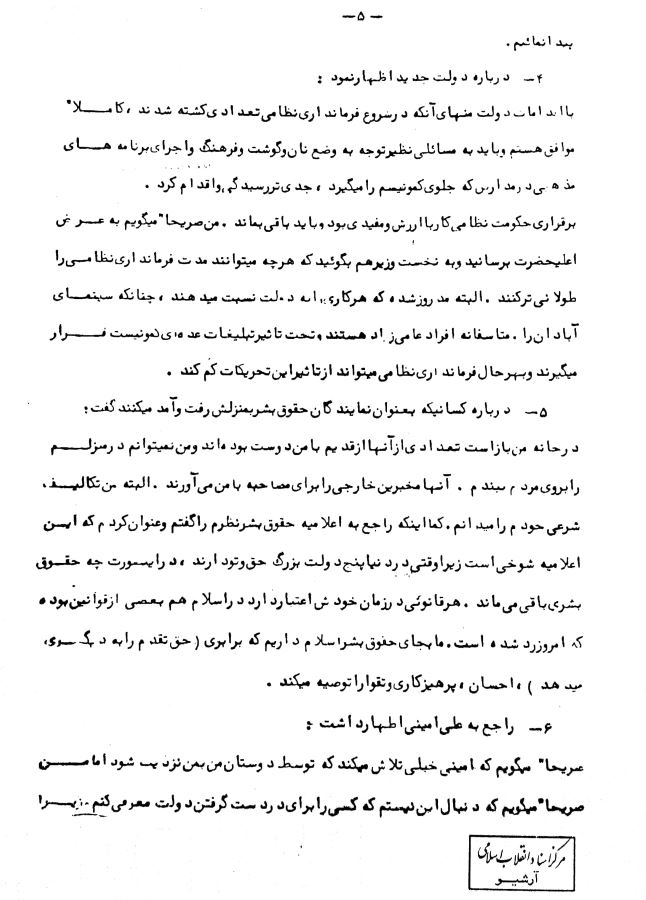 -۵-
پیدا نمائیم.
۴- درباره دولت جدید اظهار نمود:
با اقدامات دولت منهای آنکه در شروع فرمانداری نظامی تعدادی کشته شدند، کاملا"
موافق هستم و باید به مسائلی نظیر توجه به وضع نان و گوشت و فرهنگ و اجرای برنامه های
مذهبی در مدارس که جلوی کمونیسم را میگیرد، جدی تر رسیدگی و اقدام کرد.
برقراری حکومت نظامی کار با ارزش و مفیدی بود و باید باقی بماند. من صریحا" میگویم به عرض
اعلیحضرت برسانید و به نخست وزیر هم بگوئید که هرچه میتوانند مدت فرمانداری نظامی را
طولانی تر کنند. البته مد روز شده که هر کاری را به دولت نسبت میدهند، چنانکه سینمای
آبادان را. متاسفانه افراد عامی زیاد هستند و تحت تاثیر تبلیغات عده ای کمونیست قرار
میگیرند و بهر حال فرمانداری نظامی میتواند از تاثیر این تحریکات کم کند.
۵- درباره کسانیکه بعنوان نمایندگان حقوق بشر بمنزلش رفت و آمد میکنند گفت:
در خانه من باز است تعدادی از آنها از قدیم با من دوست بوده اند و من نمیتوانم در منزلم
را بروی مردم ببندم. آنها مخبرین خارجی را برای مصاحبه با من می آورند. البته من تکالیف
شرعی خودم را میدانم. کما اینکه راجع به اعلامیه حقوق بشر نظرم را گفتم و عنوان کردم که این
اعلامیه شوخی است زیرا وقتی در دنیا پنج دولت بزرگ حق وتو دارند، در اینصورت چه حقوق
بشری باقی می ماند. هر قانونی در زمان خودش اعتبار دارد در اسلام هم بعضی از قوانین بوده
که امروز رد شده است. ما بجای حقوق بشر اسلام داریم که برابری (حق تقدم را به دیگری
میدهد)، احسان، پرهیزکاری و تقوا را توصیه میکند.
۶- راجع به علی امینی اظهار داشت:
صریحا" میگویم که امینی خیلی تلاش میکند که توسط دوستان من بمن نزدیک شود اما من
صریحا" میگویم که دنبال این نیستم که کسی را برای در دست گرفتن دولت معرفی کنم. زیرا
مرکز اسناد انقلاب اسلامی
آرشیو